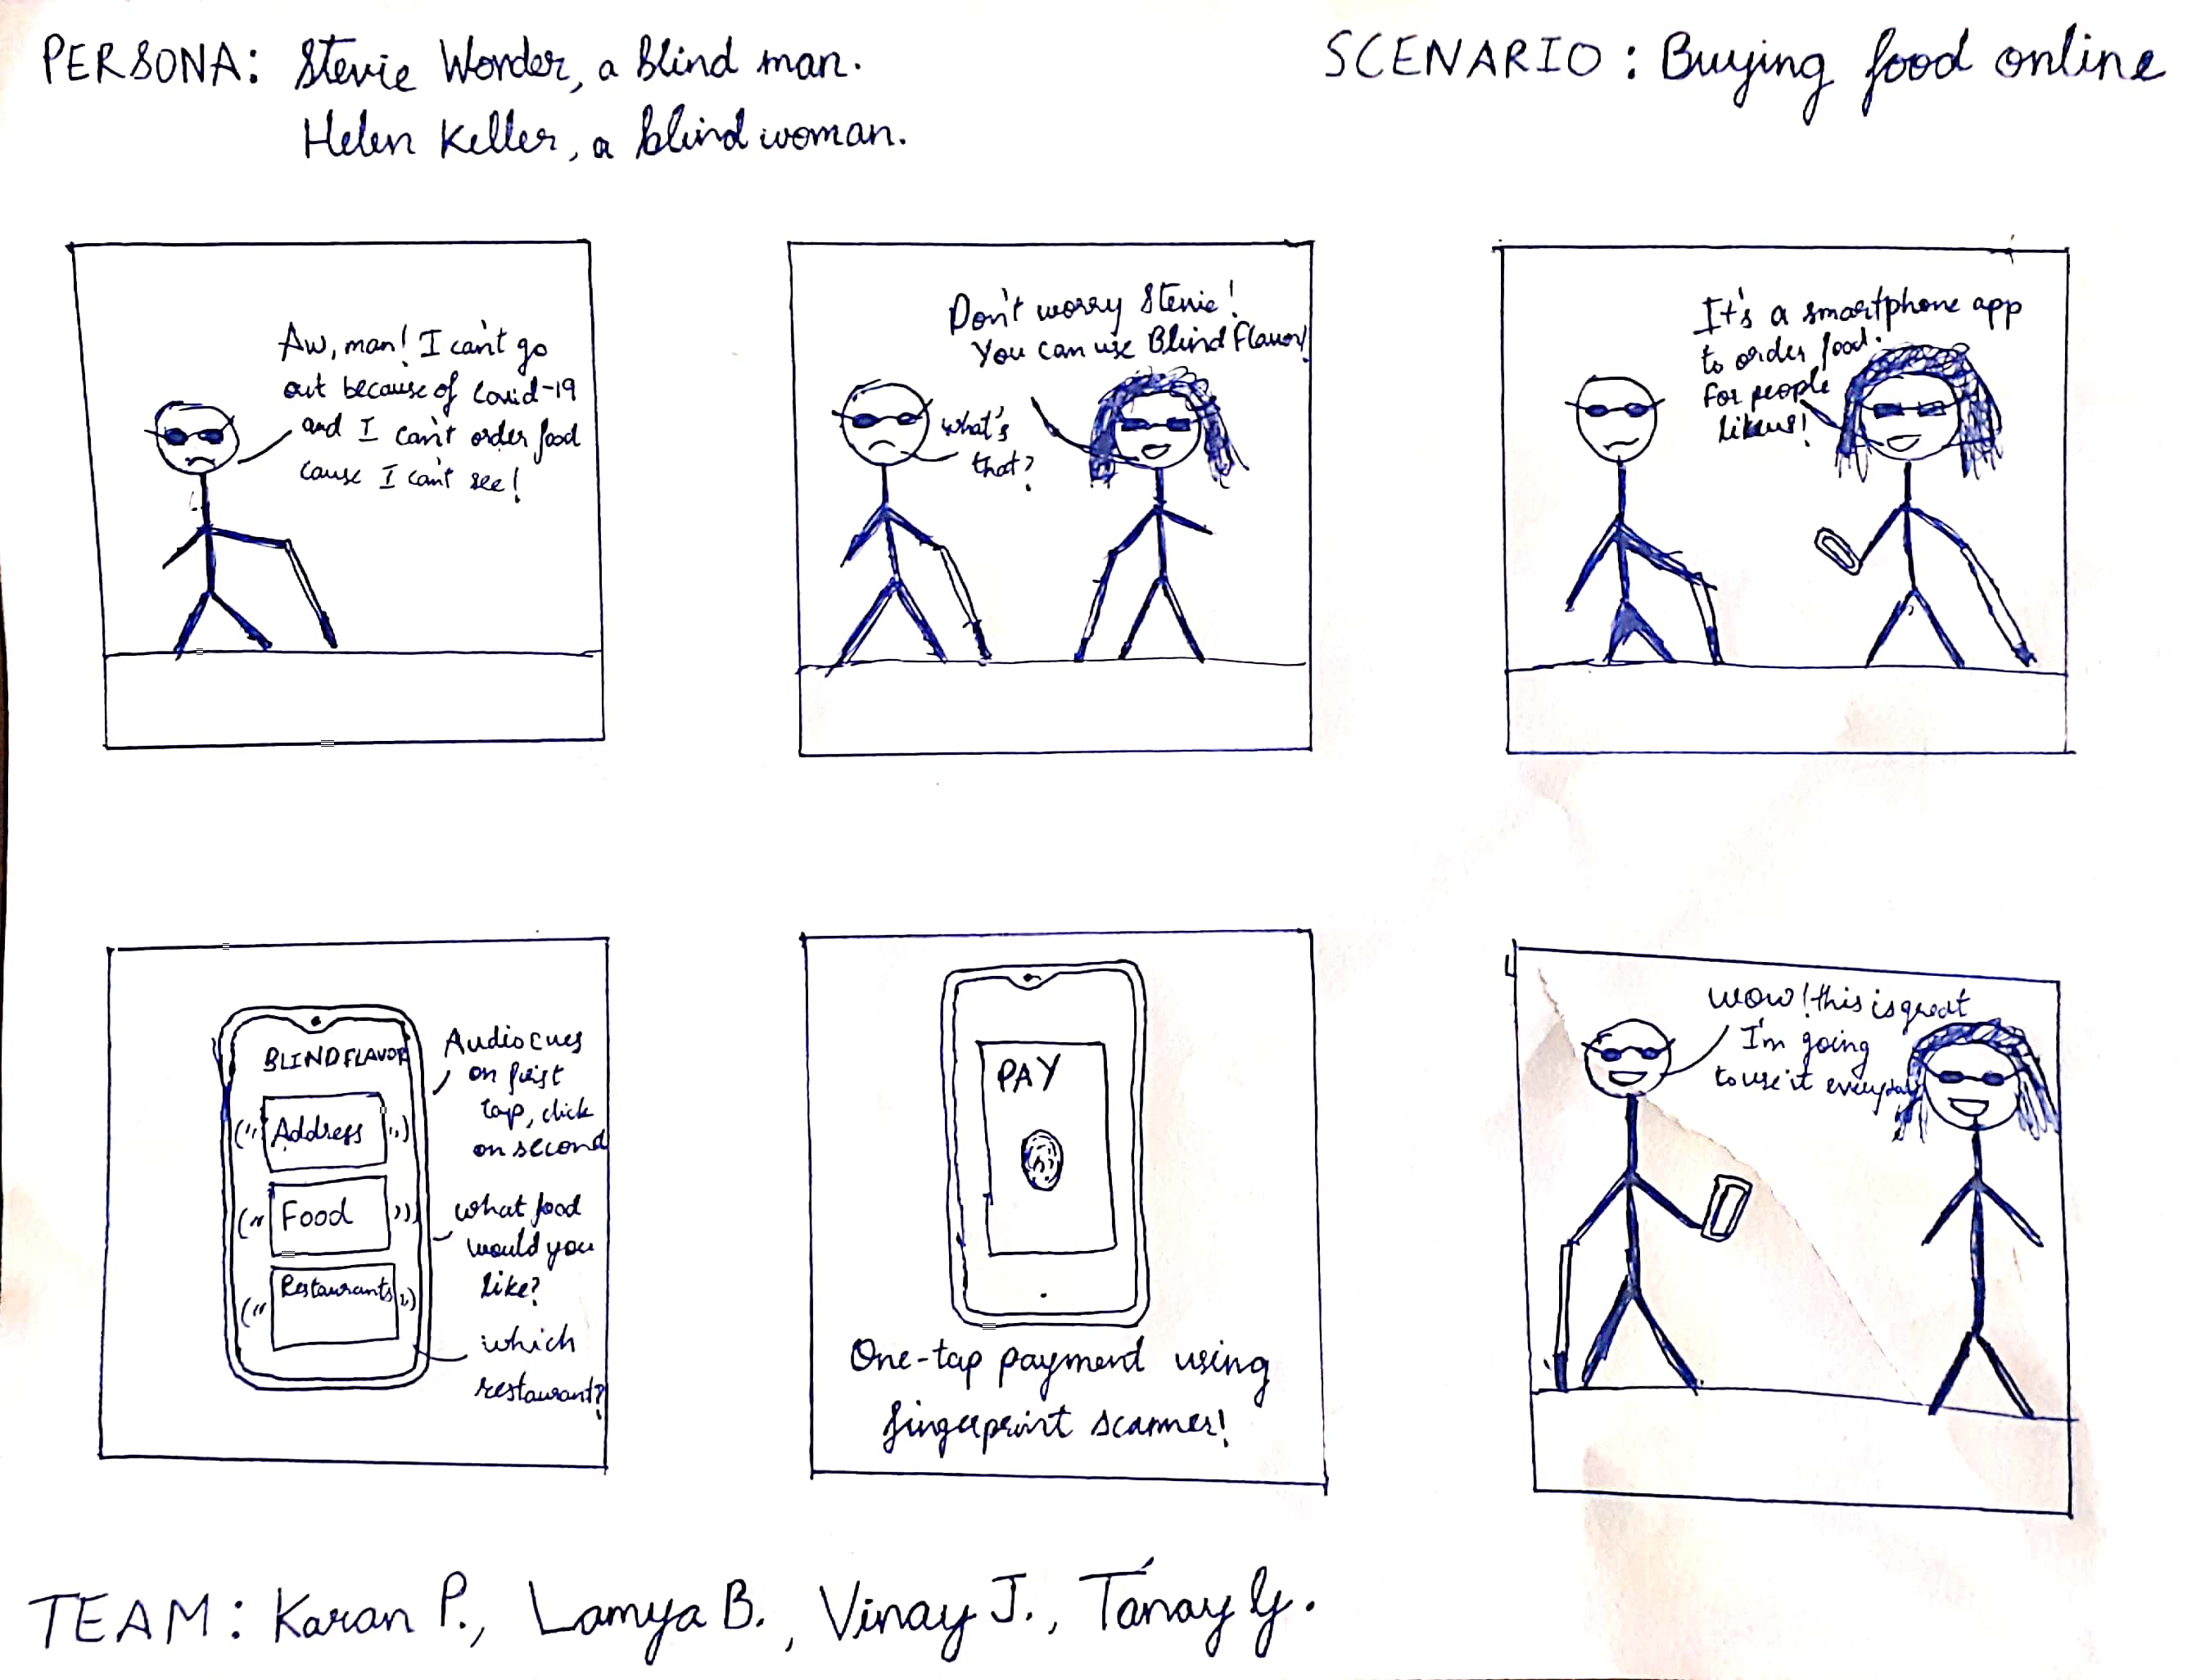 PERSONA: Stevie Wonder, a blind man.
Helen Keller, a blind woman.
SCENARIO: Buying food online
Aw, man! I can't go
out because of Covid-19
and I can't order food
cause I can't see!
Don't worry Stevie!
You can use Blind Flavor!
what's
that?
It's a smartphone app
to order food.
For people
like us!
BLINDFLAVOR
Address
Food
Restaurants
Audio cues
on first
tap, click
on second
what food
would you
like?
which
restaurant?
PAY
One-tap payment using
fingerprint scanner!
Wow! this is great
I'm going
to use it everyday
TEAM: Karan P., Lamya B., Vinay J., Tanay G.